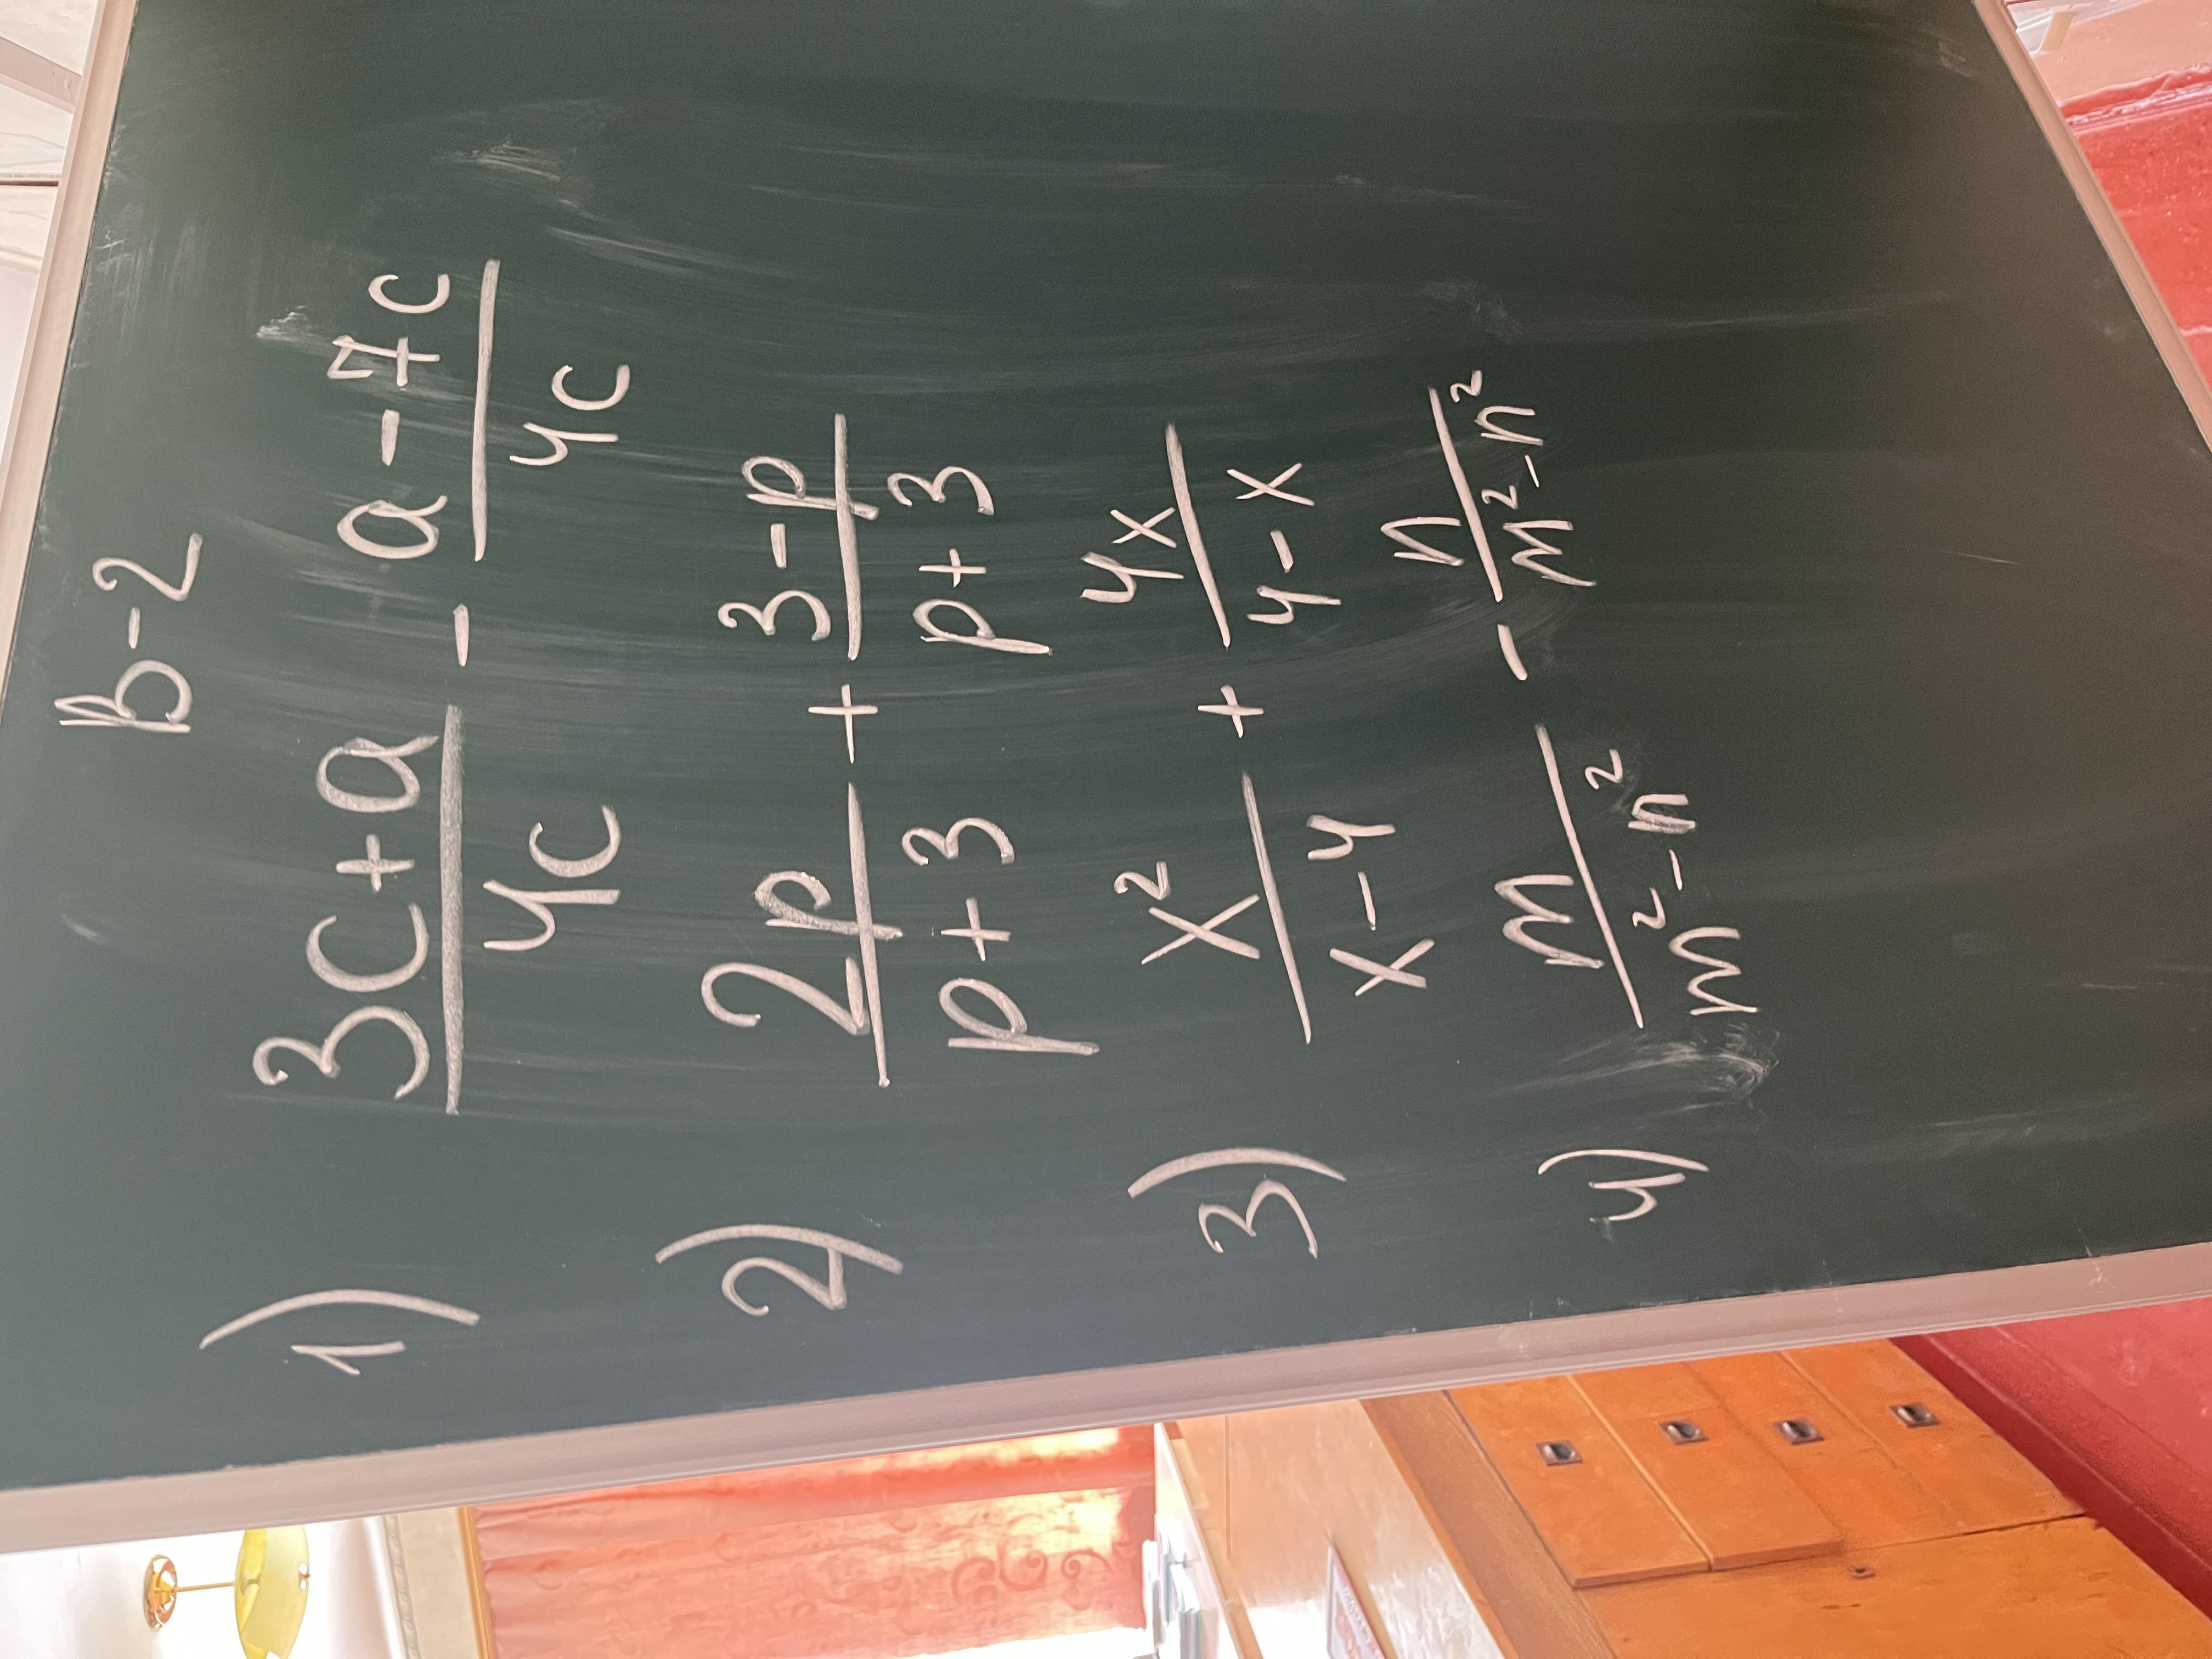 В-2
1) (3c+a)/(4c) - (a-7c)/(4c)
2) (2p)/(p+3) + (3-p)/(p+3)
3) (x²)/(x-4) + (4x)/(4-x)
4) (m)/(m²-n²) - (n)/(m²-n²)